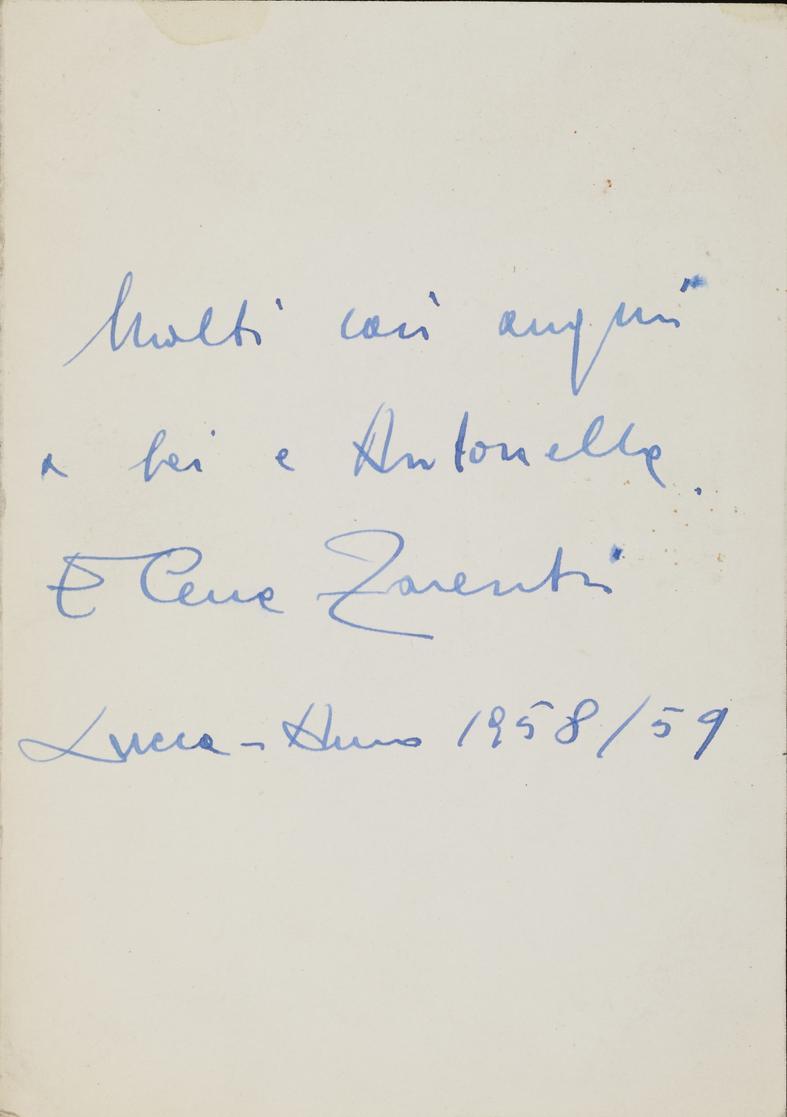 Molti cari auguri
a Lei e Antonella.
Elena Zareschi
Lucca - Anno 1958/59